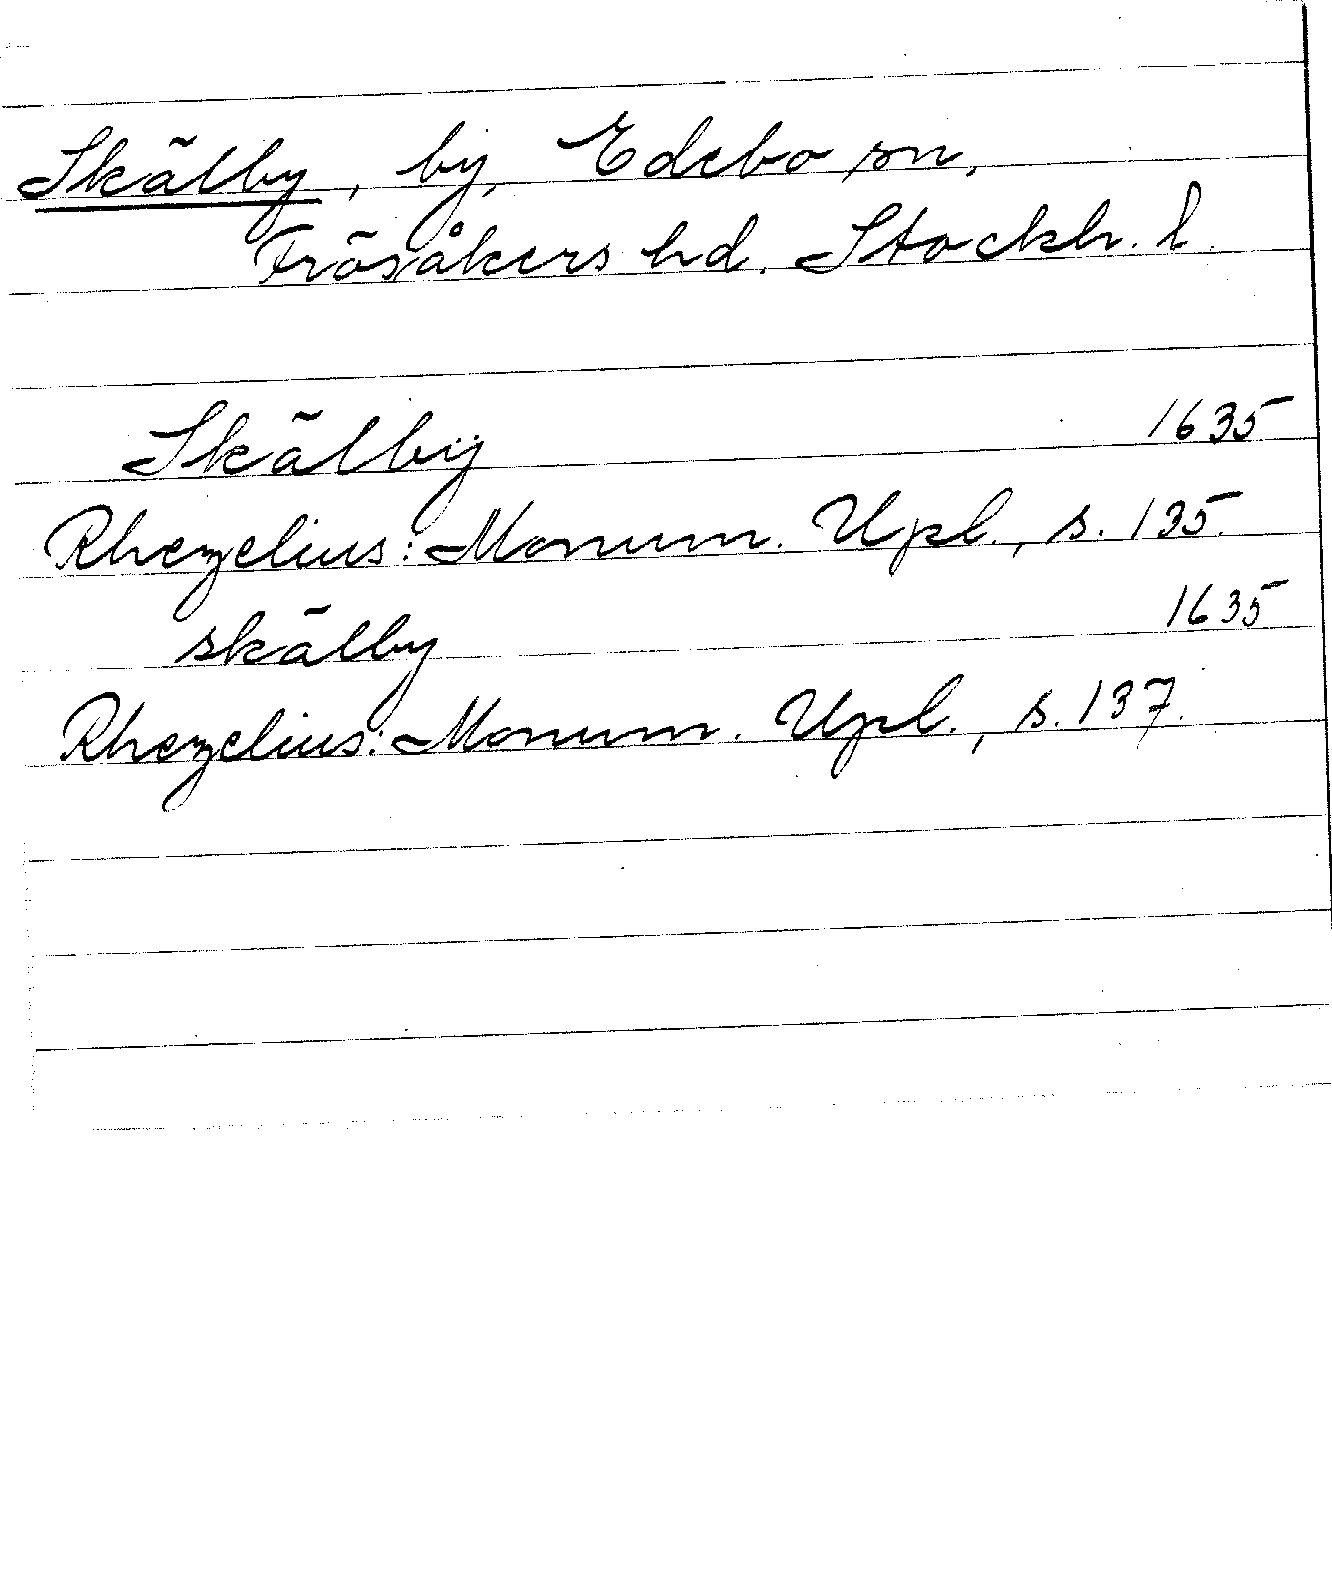 Skälby, by, Edebo sn,
Frösåkers hd. Stockh. l.
Skälbÿ 1635
Rhezelius: Monum. Upl., s. 135.
skälby 1635
Rhezelius: Monum. Upl., s. 137.